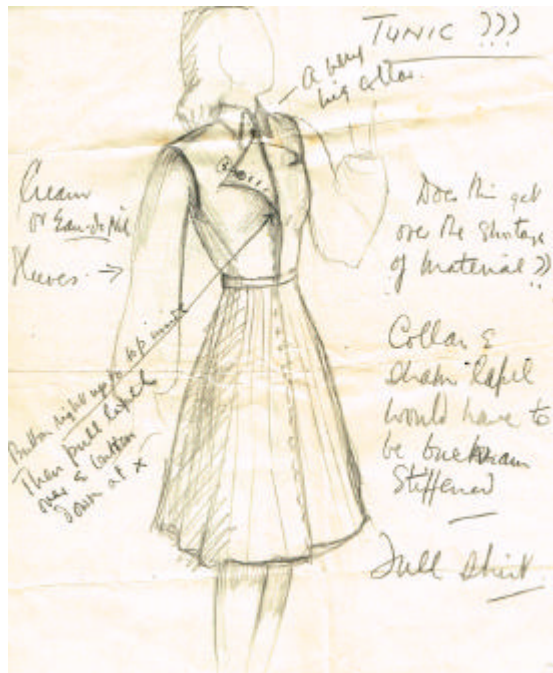 TUNIC ???
A very
big collar.
Cream
or Eau-de-Nil
Sleeves. →
Does this get
over the shortage
of material ??
Collar &
lapel
would have to
be buckram
Stiffened
Button right up to top inside
Then pull lapel
over & button
down at x
Full Skirt.